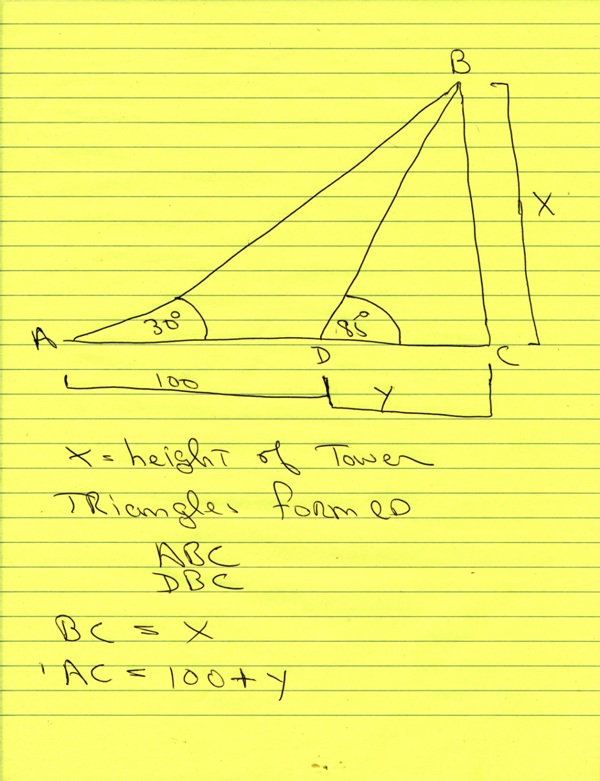 B
X
30°
85°
A
D
C
100
Y
X = height of Tower
Triangles formed
ABC
DBC
BC = X
AC = 100 + y